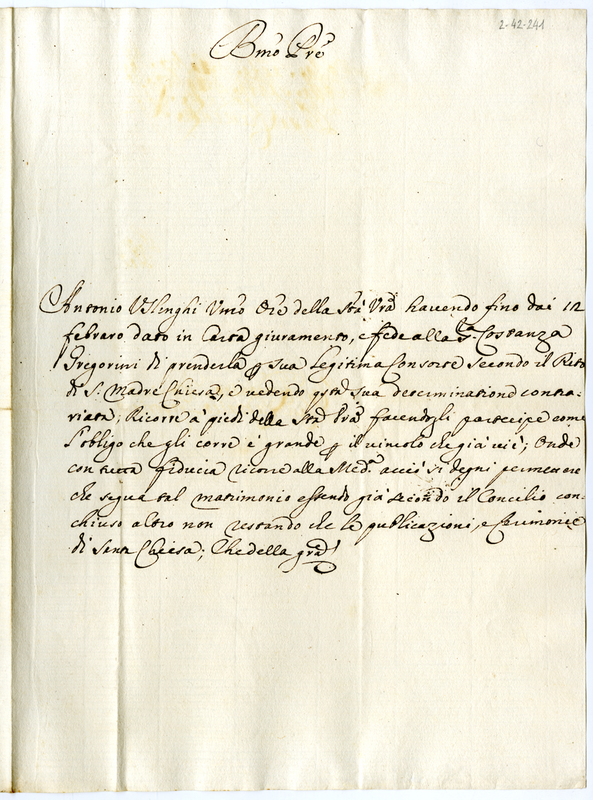 2-42-241
Bmo Pre
Antonio Uslenghi Umo Ore della Stà Vrã havendo fino dai 12
febraro dato in Carta giuramento, e fede alla Sra Costanza
Gregorini di prenderla p sua Legitima Consorte secondo il Rito
di S. Madre Chiesa, e vedendo qsta sua determinatione contra-
riata; Ricorre a' piedi della Stà Vrã facendogli partecipe come
l'obligo che gli corre è grande p il vincolo che già vi è; Onde
con tutta fiducia ricorre alla Medã acciò si degni permettere
che segua tal matrimonio essendo già secondo il Concilio con-
chiuso altro non restando che le publicazioni, e Cerimonie
di Santa Chiesa; Che della grã!